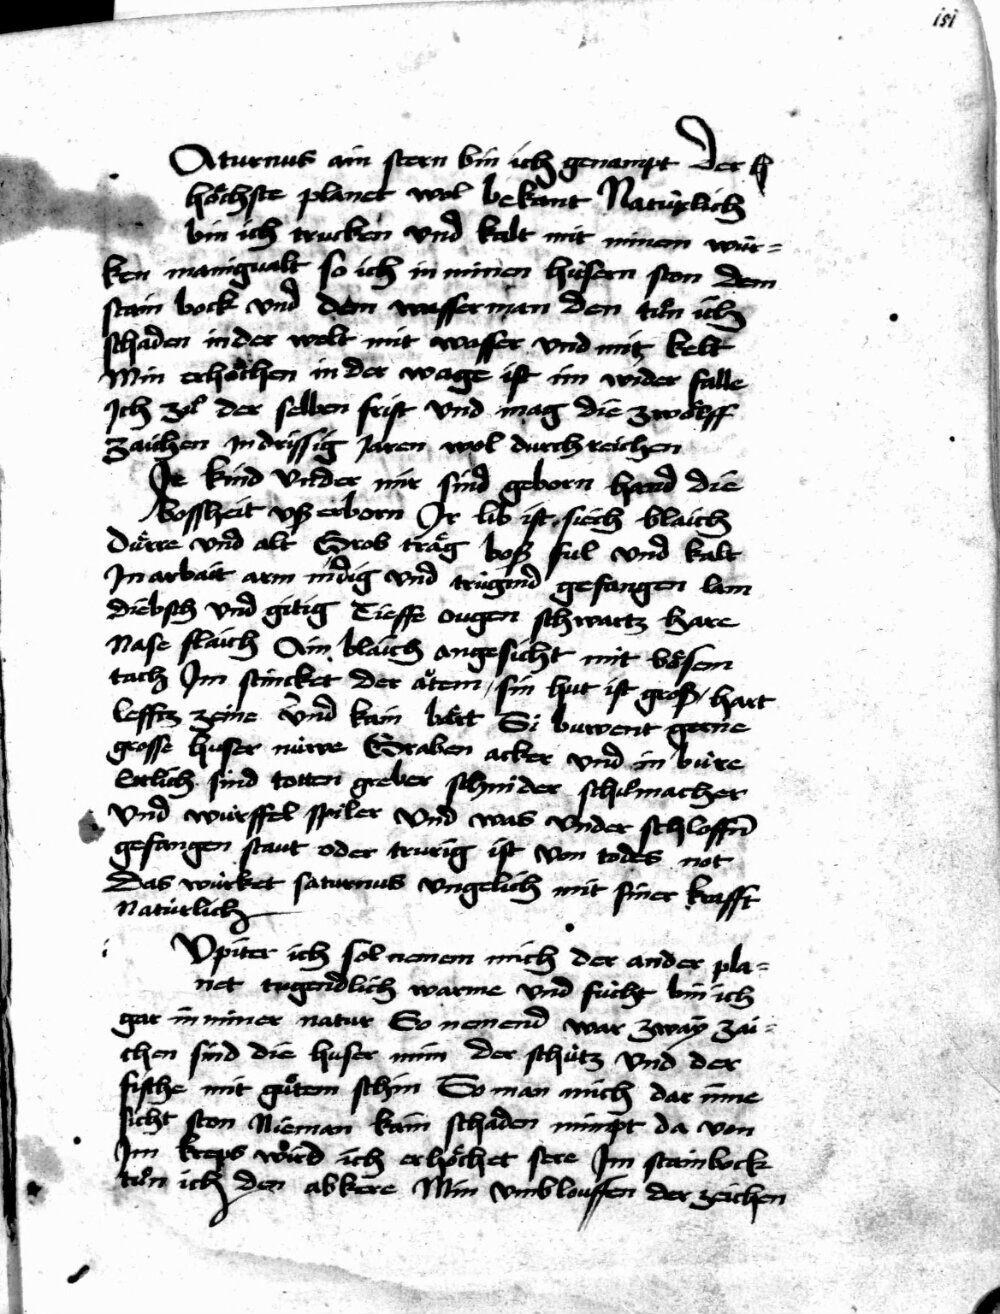 isi
Aturnus ain stern bin ich genampt Der ♄
höchste planet wol bekant Natürlich
bin ich trucken vnd kalt mit minem wür=
ken manigualt so ich in minen hüsern ston dem
stain bock vnd dem wasserman den tůn ich
schaden in der welt mit wasser vnd mit kelt
Min erhöchen in der wage ist im wider falle
Ich zů der selben frist vnd mag die zwölff
zaichen in drissig Jaren wol durchreichen
Ir kind vnder mir sind geborn hand die
bossheit vß erborn Ir lib ist siech blaich
Dürre vnd alt Grob träg boß ful vnd kalt
In arbait arm nidig vnd trügind gefangen lam
diebsch vnd gitig Tieffe ougen schwartz hare
Nase flaich Ain blaich angesicht mit bösem
tach Im stincket der ätem / sin hut ist groß / hart
lefftz zeine vnd kain bärt Si buwent gerne
grosse huser nürre Graben acker vnd in büre
Ettlich sind totten greber schnider schilmacher
vnd würffel spiler vnd was vnder schlossn
gefangen staut oder trurig ist von todes not
Das würket saturnus vngelich mit siner krafft
Natürlich
i Vpiter ich sol nemem mich der ander pla=
net tugendlich warme vnd fücht bin ich
gar in miner natur So nemend war zway zai=
chen sind die huser mim der schütz vnd der
fische mit gůtem schin So man mich dar inne
sicht ston Nieman kain schaden nimpt da von
Im kreps wird ich erhöchet sere Im stainbock
tůn ich den abkere Min vmblouffen der zeichen